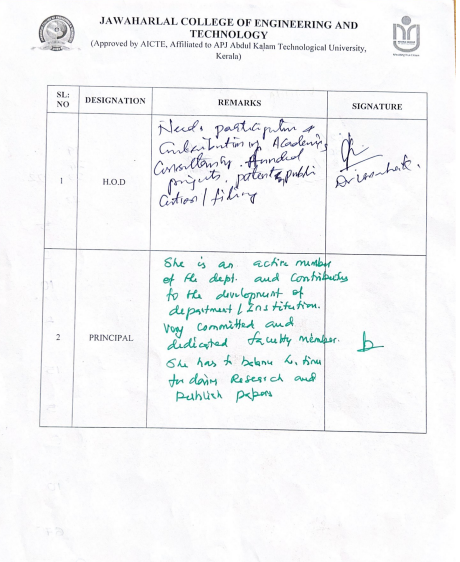 JAWAHARLAL COLLEGE OF ENGINEERING AND
TECHNOLOGY
(Approved by AICTE, Affiliated to APJ Abdul Kalam Technological University,
Kerala)
SL:
NO
DESIGNATION
REMARKS
SIGNATURE
1
H.O.D
Needs participation &
Contribution in Academic
Consultancy, funded
projects, patent publi
cation / filing
2
PRINCIPAL
She is an active member
of the dept. and contributes
to the development of
department / Institution.
Very committed and
dedicated faculty member.
She has to time
for doing Research and
publish papers